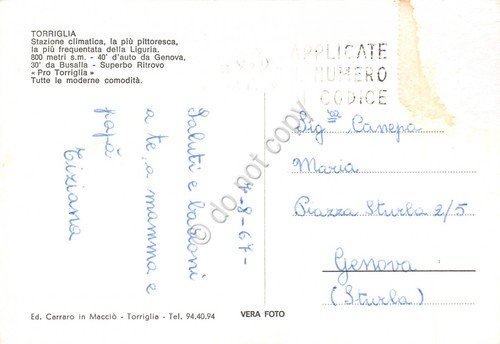 TORRIGLIA
Stazione climatica, la più pittoresca,
la più frequentata della Liguria.
800 metri s.m. - 40' d'auto da Genova,
30' da Busalla - Superbo Ritrovo
« Pro Torriglia »
Tutte le moderne comodità.
APPLICATE
NUMERO
CODICE
4-8-67-
Saluti e bacioni
a te, a mamma e
papà
Tiziana
Sig Canepa
Maria
Piazza Sturla 2/5
Genova
(Sturla)
do not copy
Ed. Carraro in Macciò - Torriglia - Tel. 94.40.94
VERA FOTO